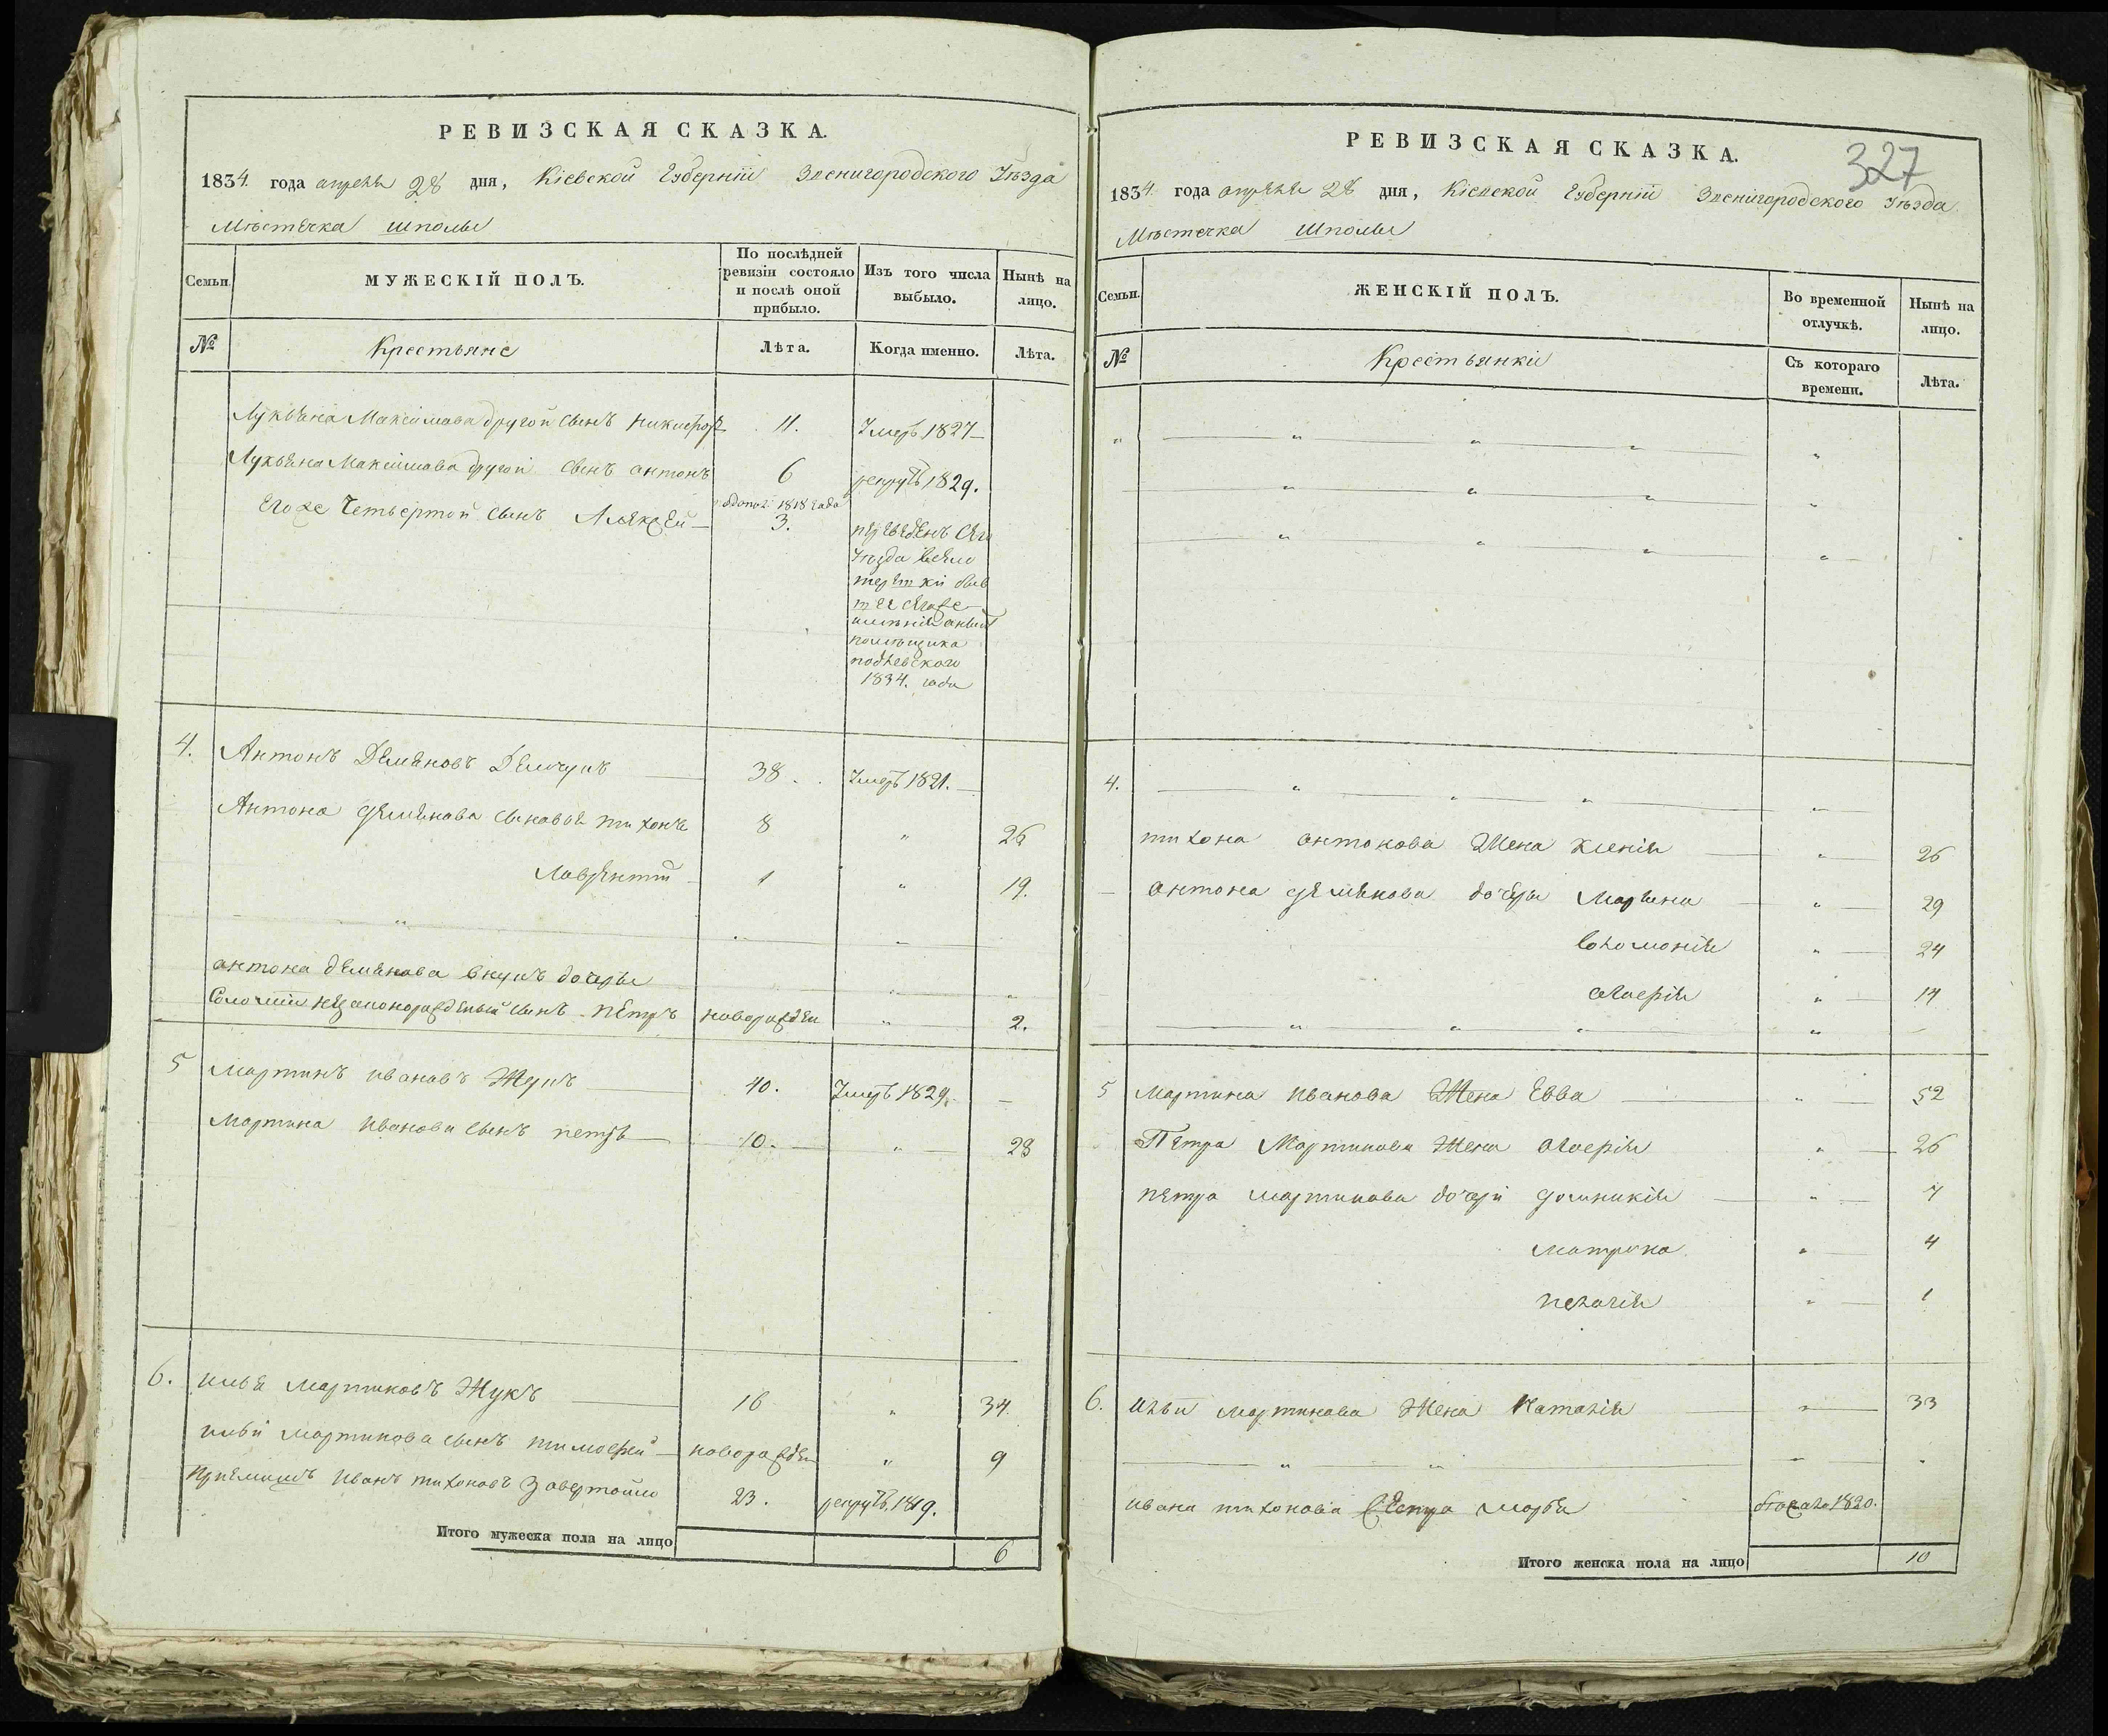 РЕВИЗСКАЯ СКАЗКА.
1834. года апреля 28 дня, Кіевской Губерніи Звенигородского Уѣзда
Мѣстечка Шполы
Семьи.
МУЖЕСКІЙ ПОЛЪ.
По послѣдней ревизіи состояло и послѣ оной прибыло.
Изъ того числа выбыло.
Нынѣ на лицо.
№
Крестьяне
Лѣта.
Когда именно.
Лѣта.
Лукьяна Максимова другой сынъ Никифоръ 11. Умеръ 1827
Лукьяна Максимова другой сынъ антонъ 6 рекрутъ 1829.
Его же Четвертой сынъ Алексей 1818 года 3.
переведенъ Сего
Уѣзда
имѣнія
помѣщика
1834. года
4. Антонъ Демяновъ 38. Умеръ 1821.
Антона демянова сыновья тихонъ 8 " 26
Лаврентій 1 " 19.
" " "
антона демянова внукъ дочеры
незаконорожденый сынъ петръ новорожден " 2.
5 Мартинъ ивановъ Жукъ 40. Умеръ 1829. —
Мартина иванова сынъ петръ 10. " 28
6. илья мартиновъ Жукъ 16 " 34.
ильи мартинова сынъ тимофей новорожден " 9
Приемишъ иванъ тихоновъ 23. рекрутъ 1819.
Итого мужеска пола на лицо 6
327
РЕВИЗСКАЯ СКАЗКА.
1834. года апреля 28 дня, Кіевской Губерніи Звенигородского Уѣзда
Мѣстечка Шполы
Семьи.
ЖЕНСКІЙ ПОЛЪ.
Во временной отлучкѣ.
Нынѣ на лицо.
№
Крестьянки
Съ котораго времени.
Лѣта.
" " " " "
" " " "
" " " "
4. " " " "
тихона антонова Жена Ксенія " 26
антона демянова дочеры Марьяна " 29
Соломонія " 24
Глиерія " 14
" " " "
5 Мартина иванова Жена Евва " 52
Петра Мартинова Жена Глиерія " 26
петра мартинова дочери домникія " 7
матрона " 4
пелагія " 1
6. ильи мартинова Жена Наталія " 33
" " " "
ивана тихонова Сестра Марья бежала 1820.
Итого женска пола на лицо 10